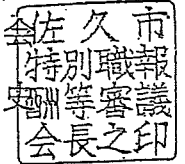 佐久市
特別職報
酬等審議
会長之印
会